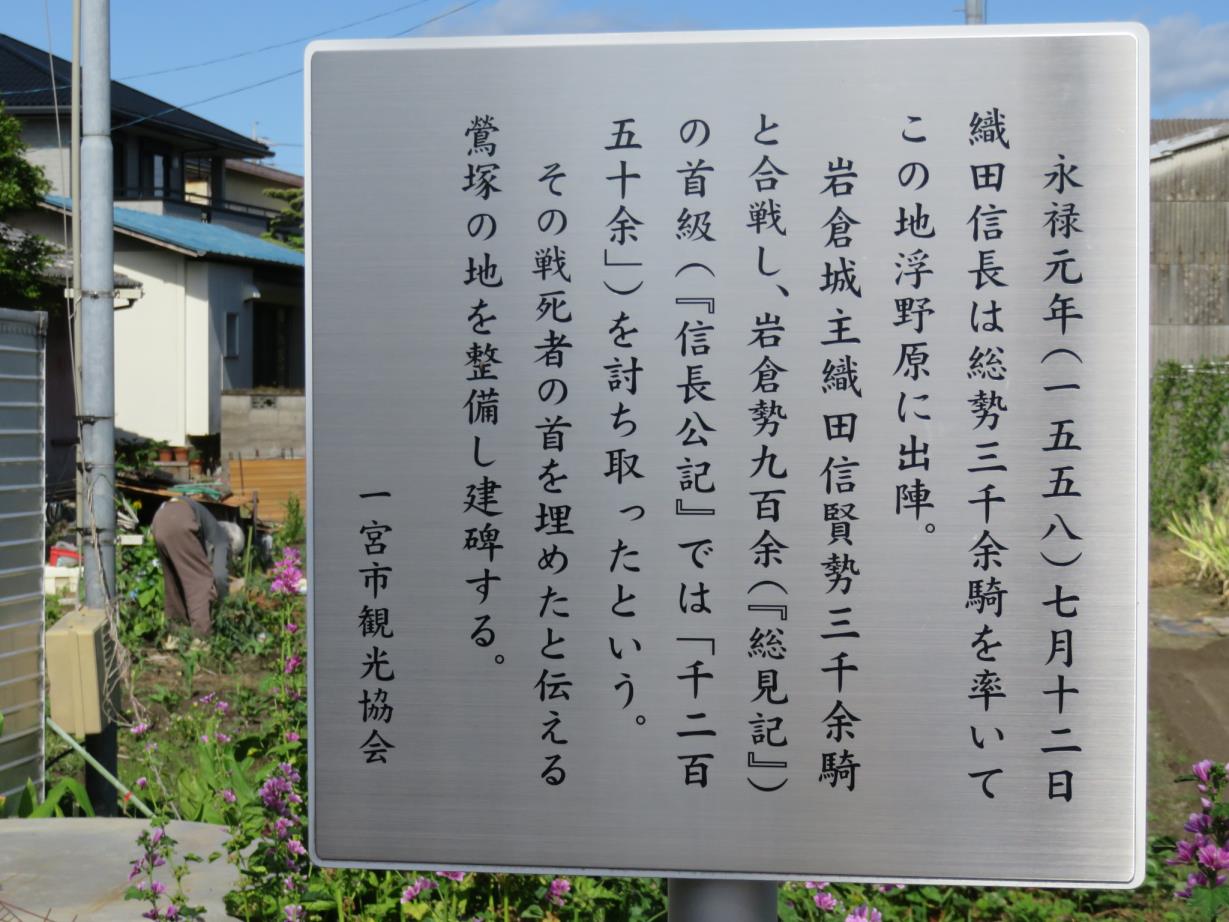 永禄元年（一五五八）七月十二日
織田信長は総勢三千余騎を率いて
この地浮野原に出陣。
岩倉城主織田信賢勢三千余騎
と合戦し、岩倉勢九百余（『総見記』）
の首級（『信長公記』では「千二百
五十余」）を討ち取ったという。
その戦死者の首を埋めたと伝える
鶯塚の地を整備し建碑する。
一宮市観光協会